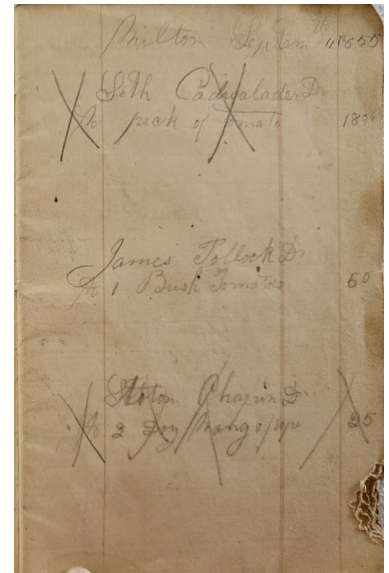 Milton Septem 11th 1855
Seth Cadwalader Dr
To peck of tomato 18
James Pollock Dr
To 1 Bush Tomatoes 50
Chapin Dr
To 2 Doz Mango 25